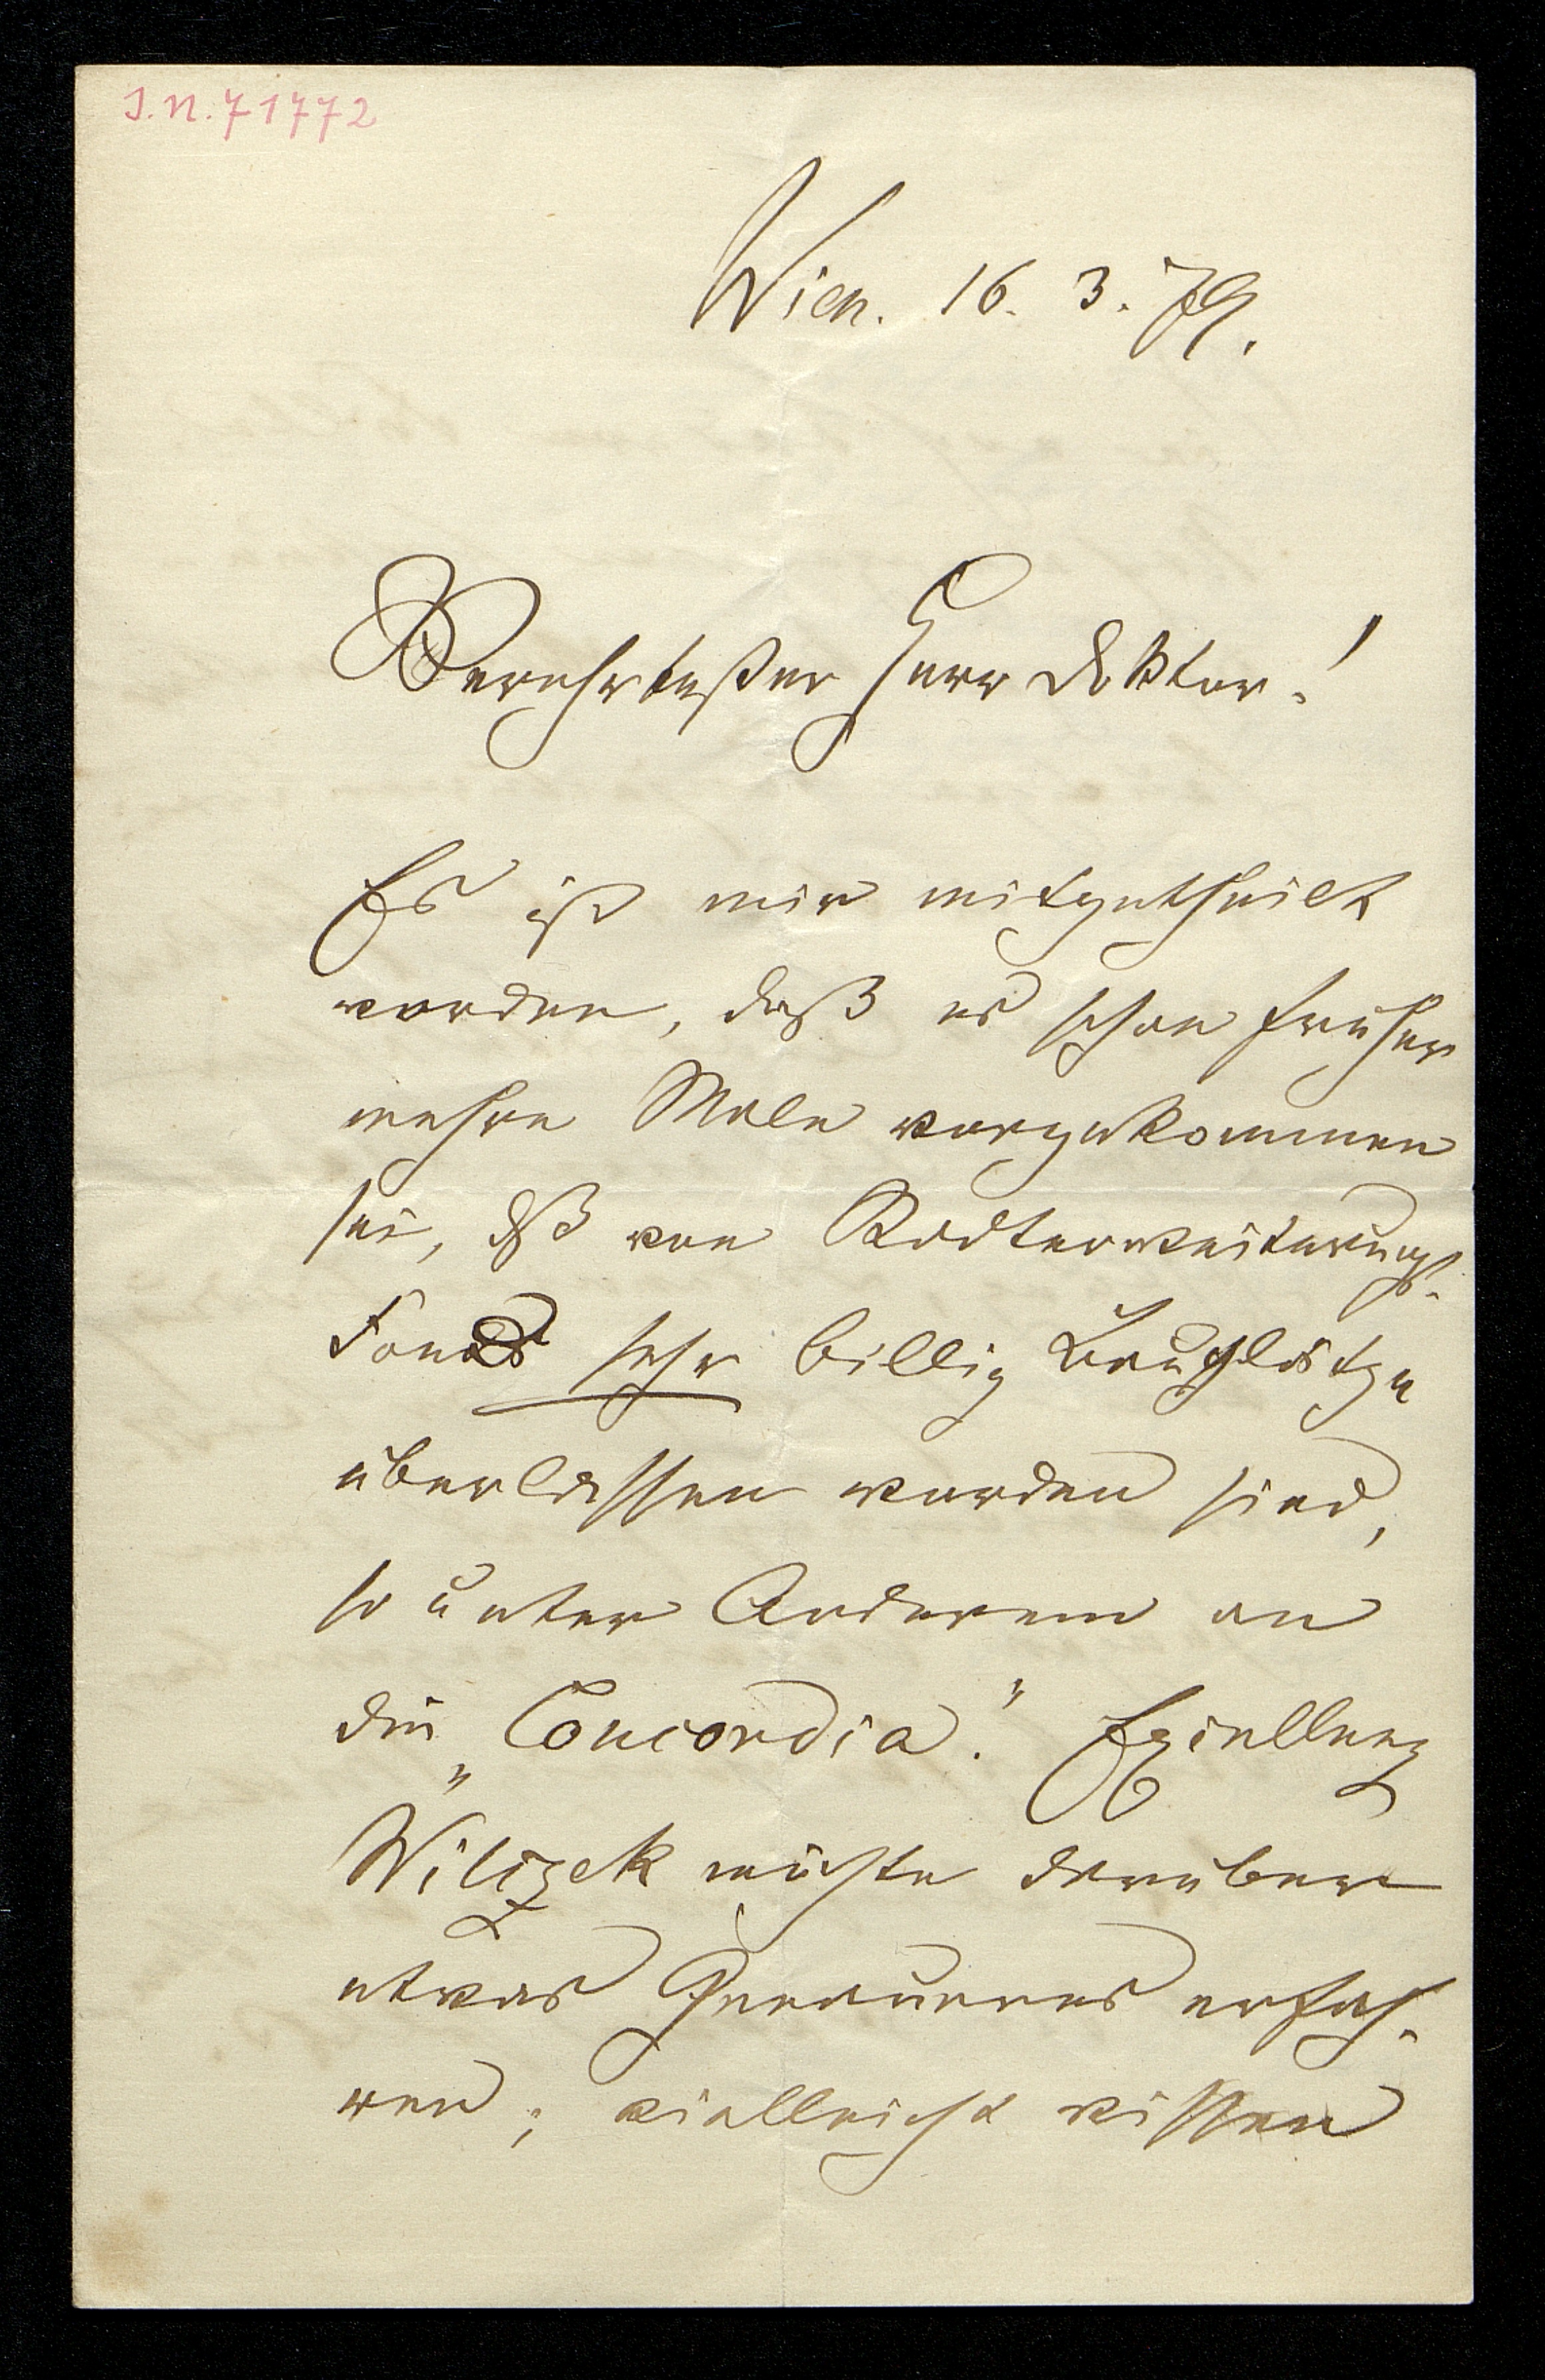 J.N. 71772
Wien. 16. 3. 79.
Verehrtester Herr Doktor!
Es ist mir mitgetheilt
worden, daß es schon früher
mehre Male vorgekommen
sei, daß von Stadterweiterungs-
Fonds sehr billig Bauplätze
überlassen worden sind,
so unter Anderem an
die „Concordia." Exzellenz
Wilczek müßte darüber
etwas Genaueres erfah-
ren; vielleicht wissen